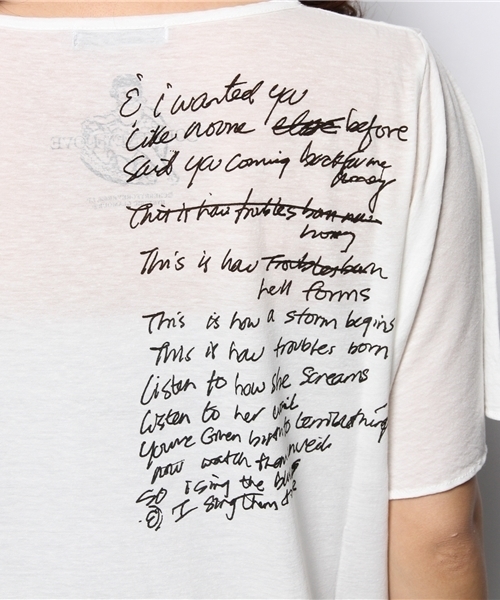 & i wanted you
like noone else before
said you coming back for me
honey
This is how troubles born
honey
This is how Troubles born
hell forms
This is how a storm begins
This is how troubles born
Listen to how she screams
listen to her wail
You've Given birth to terrible things
now watch them
So i sing the blues
& I sing them